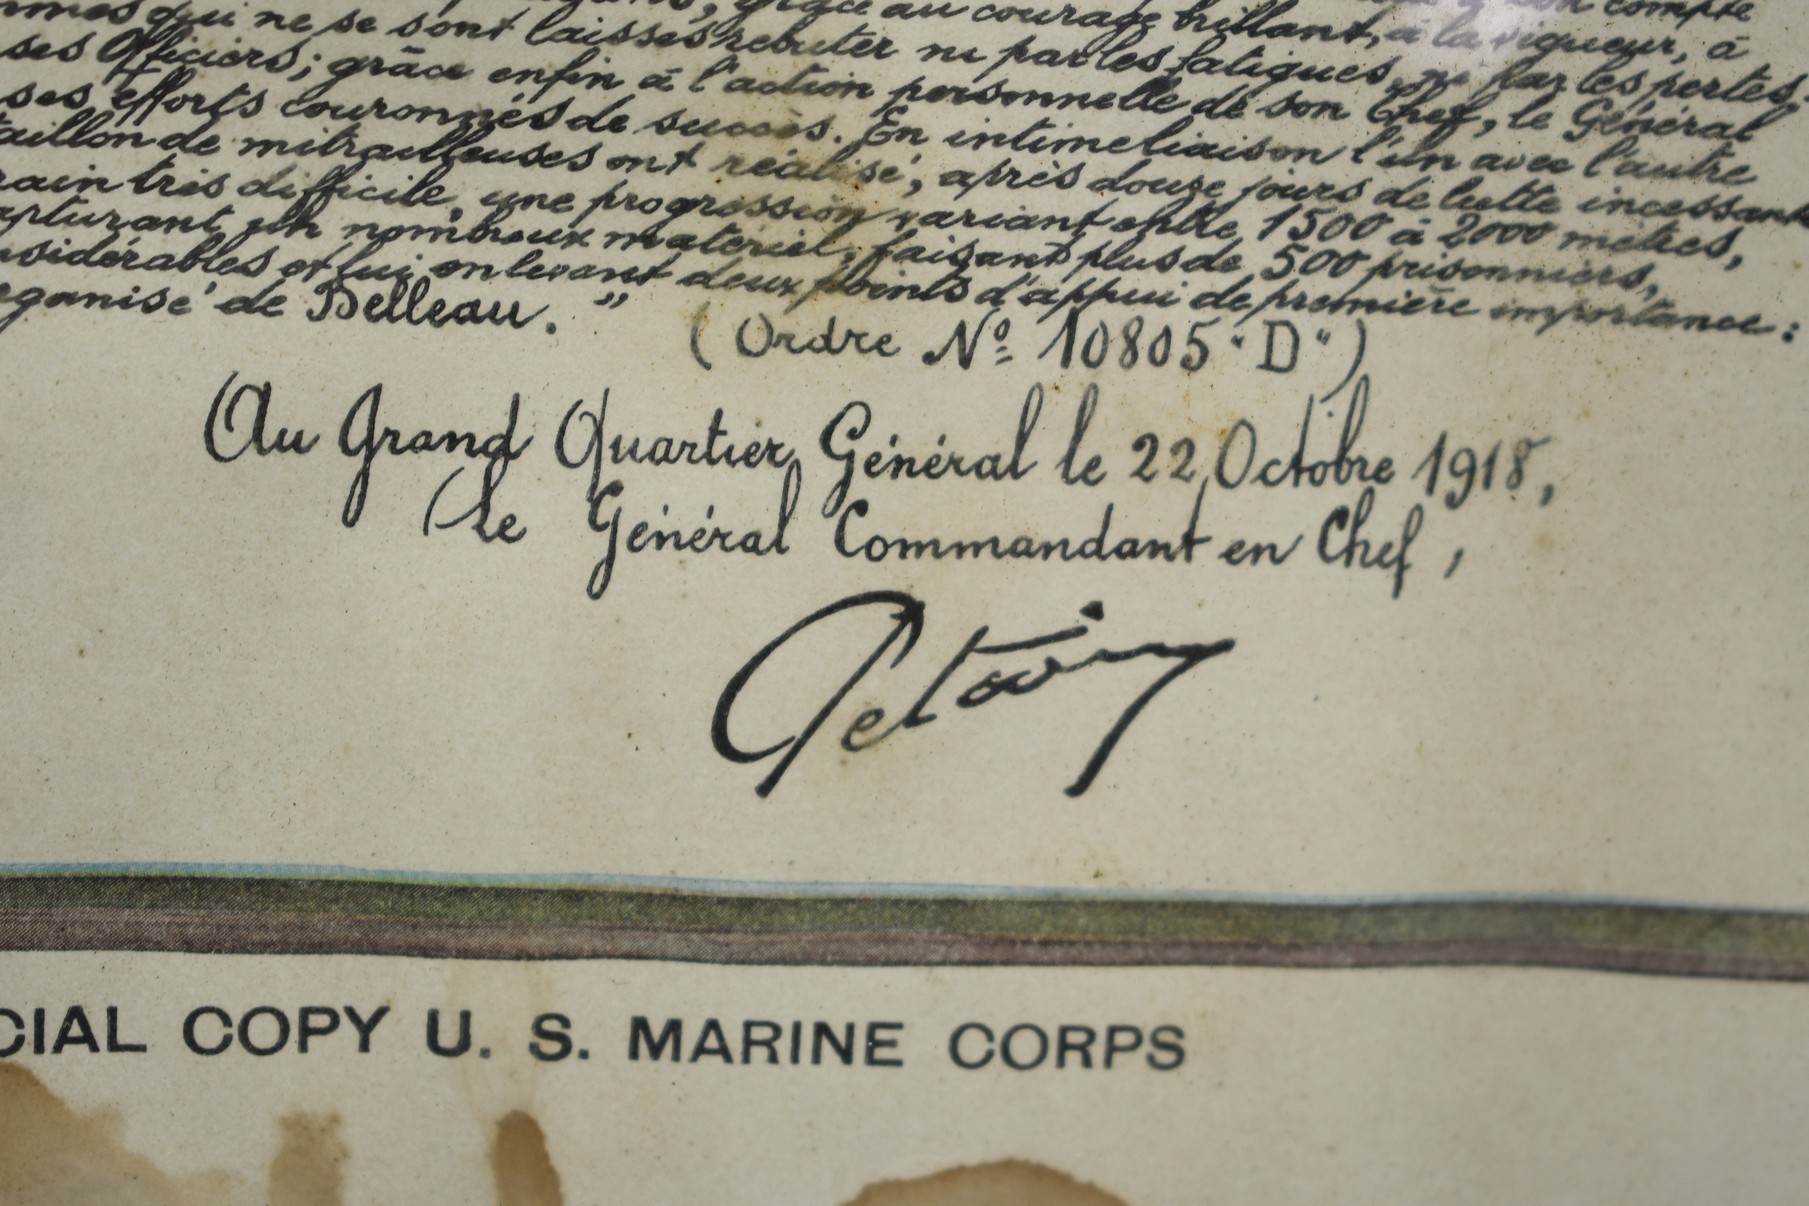 qui ne se sont laissés rebuter ni par les fatigues, ni par les pertes
ses Officiers; grâce enfin à l'action personnelle de son Chef, le Général
ses efforts couronnés de succès. En intime liaison l'un avec l'autre
de mitrailleuses ont réalisé, après douze jours de lutte incessante
très difficile, une progression variant entre 1500 à 2000 mètres,
un nombreux matériel, faisant plus de 500 prisonniers,
et lui enlevant deux points d'appui de première importance:
de Belleau."
(Ordre Nº 10805 "D")
Au Grand Quartier Général le 22 Octobre 1918,
Le Général Commandant en Chef,
Petain
CIAL COPY U. S. MARINE CORPS